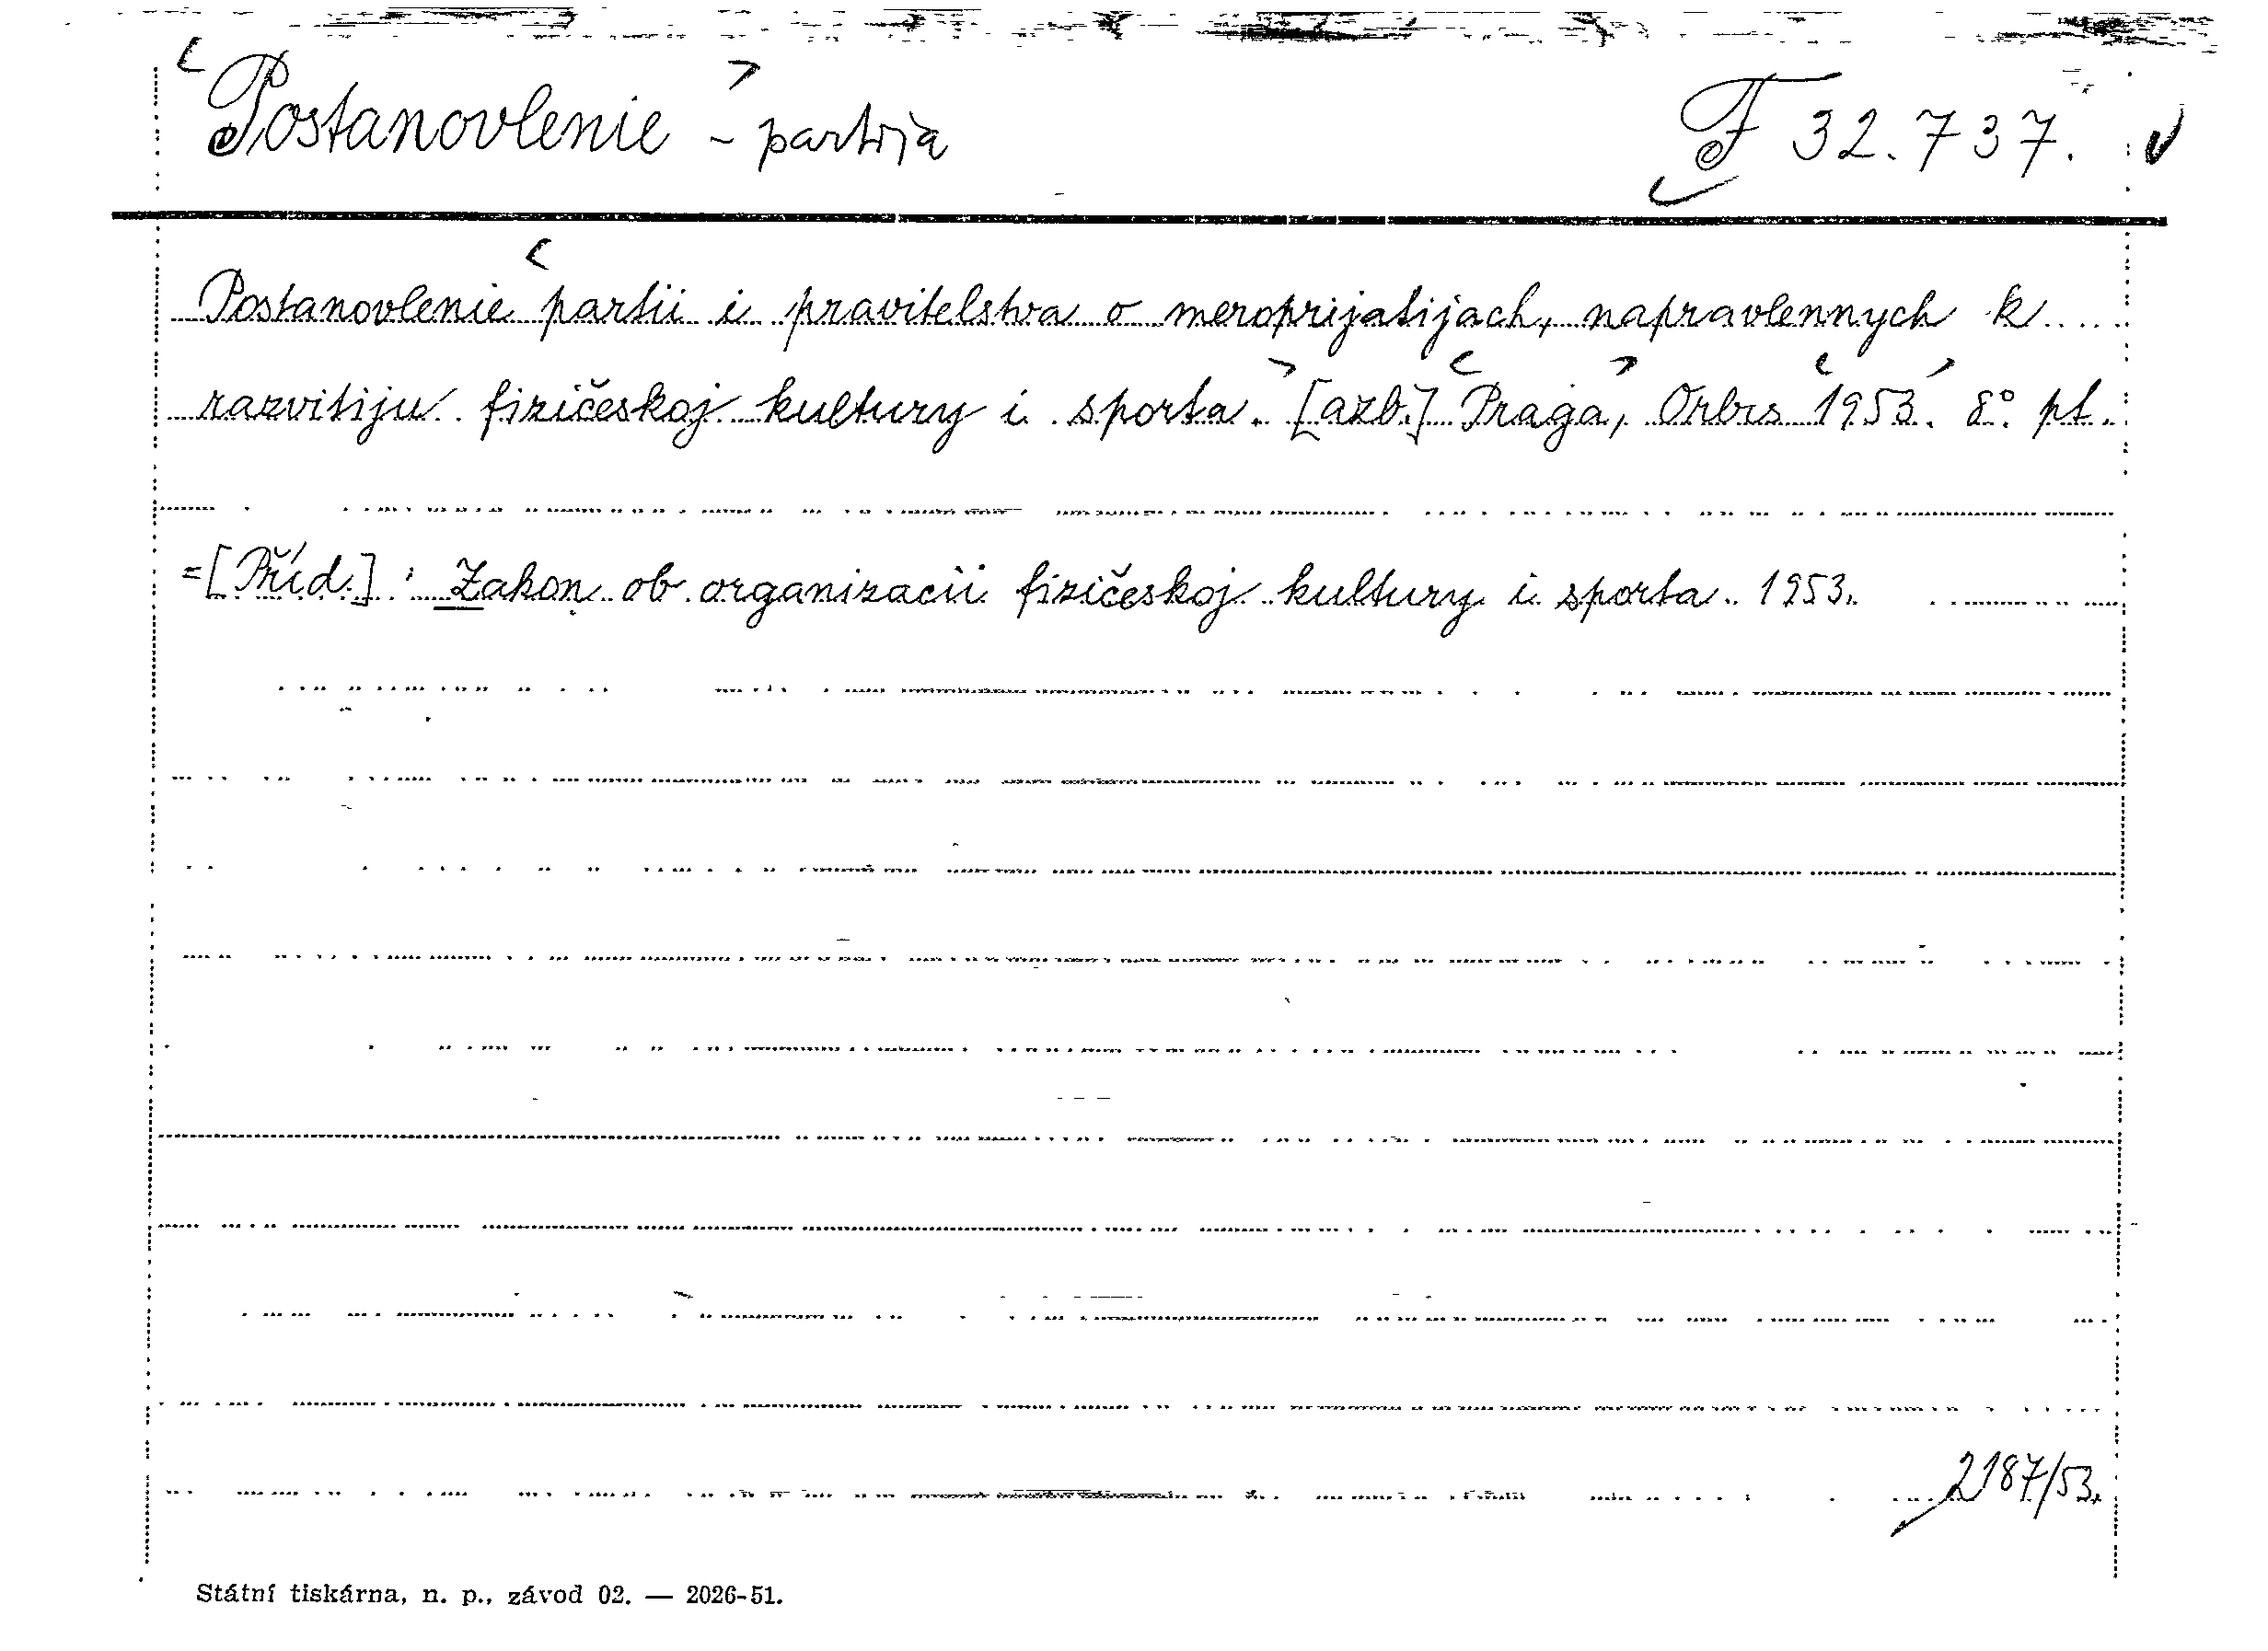 Postanovlenie - partija F 32.737.
Postanovlenie partii i pravitelstva o meroprijatijach, napravlennych k
razvitiju fizičeskoj kultury i sporta. [azb.] Praga, Orbis 1953. 8° pt.
=[Příd.]: Zakon ob organizacii fizičeskoj kultury i sporta. 1953.
2187/53.
Státní tiskárna, n. p., závod 02. — 2026-51.